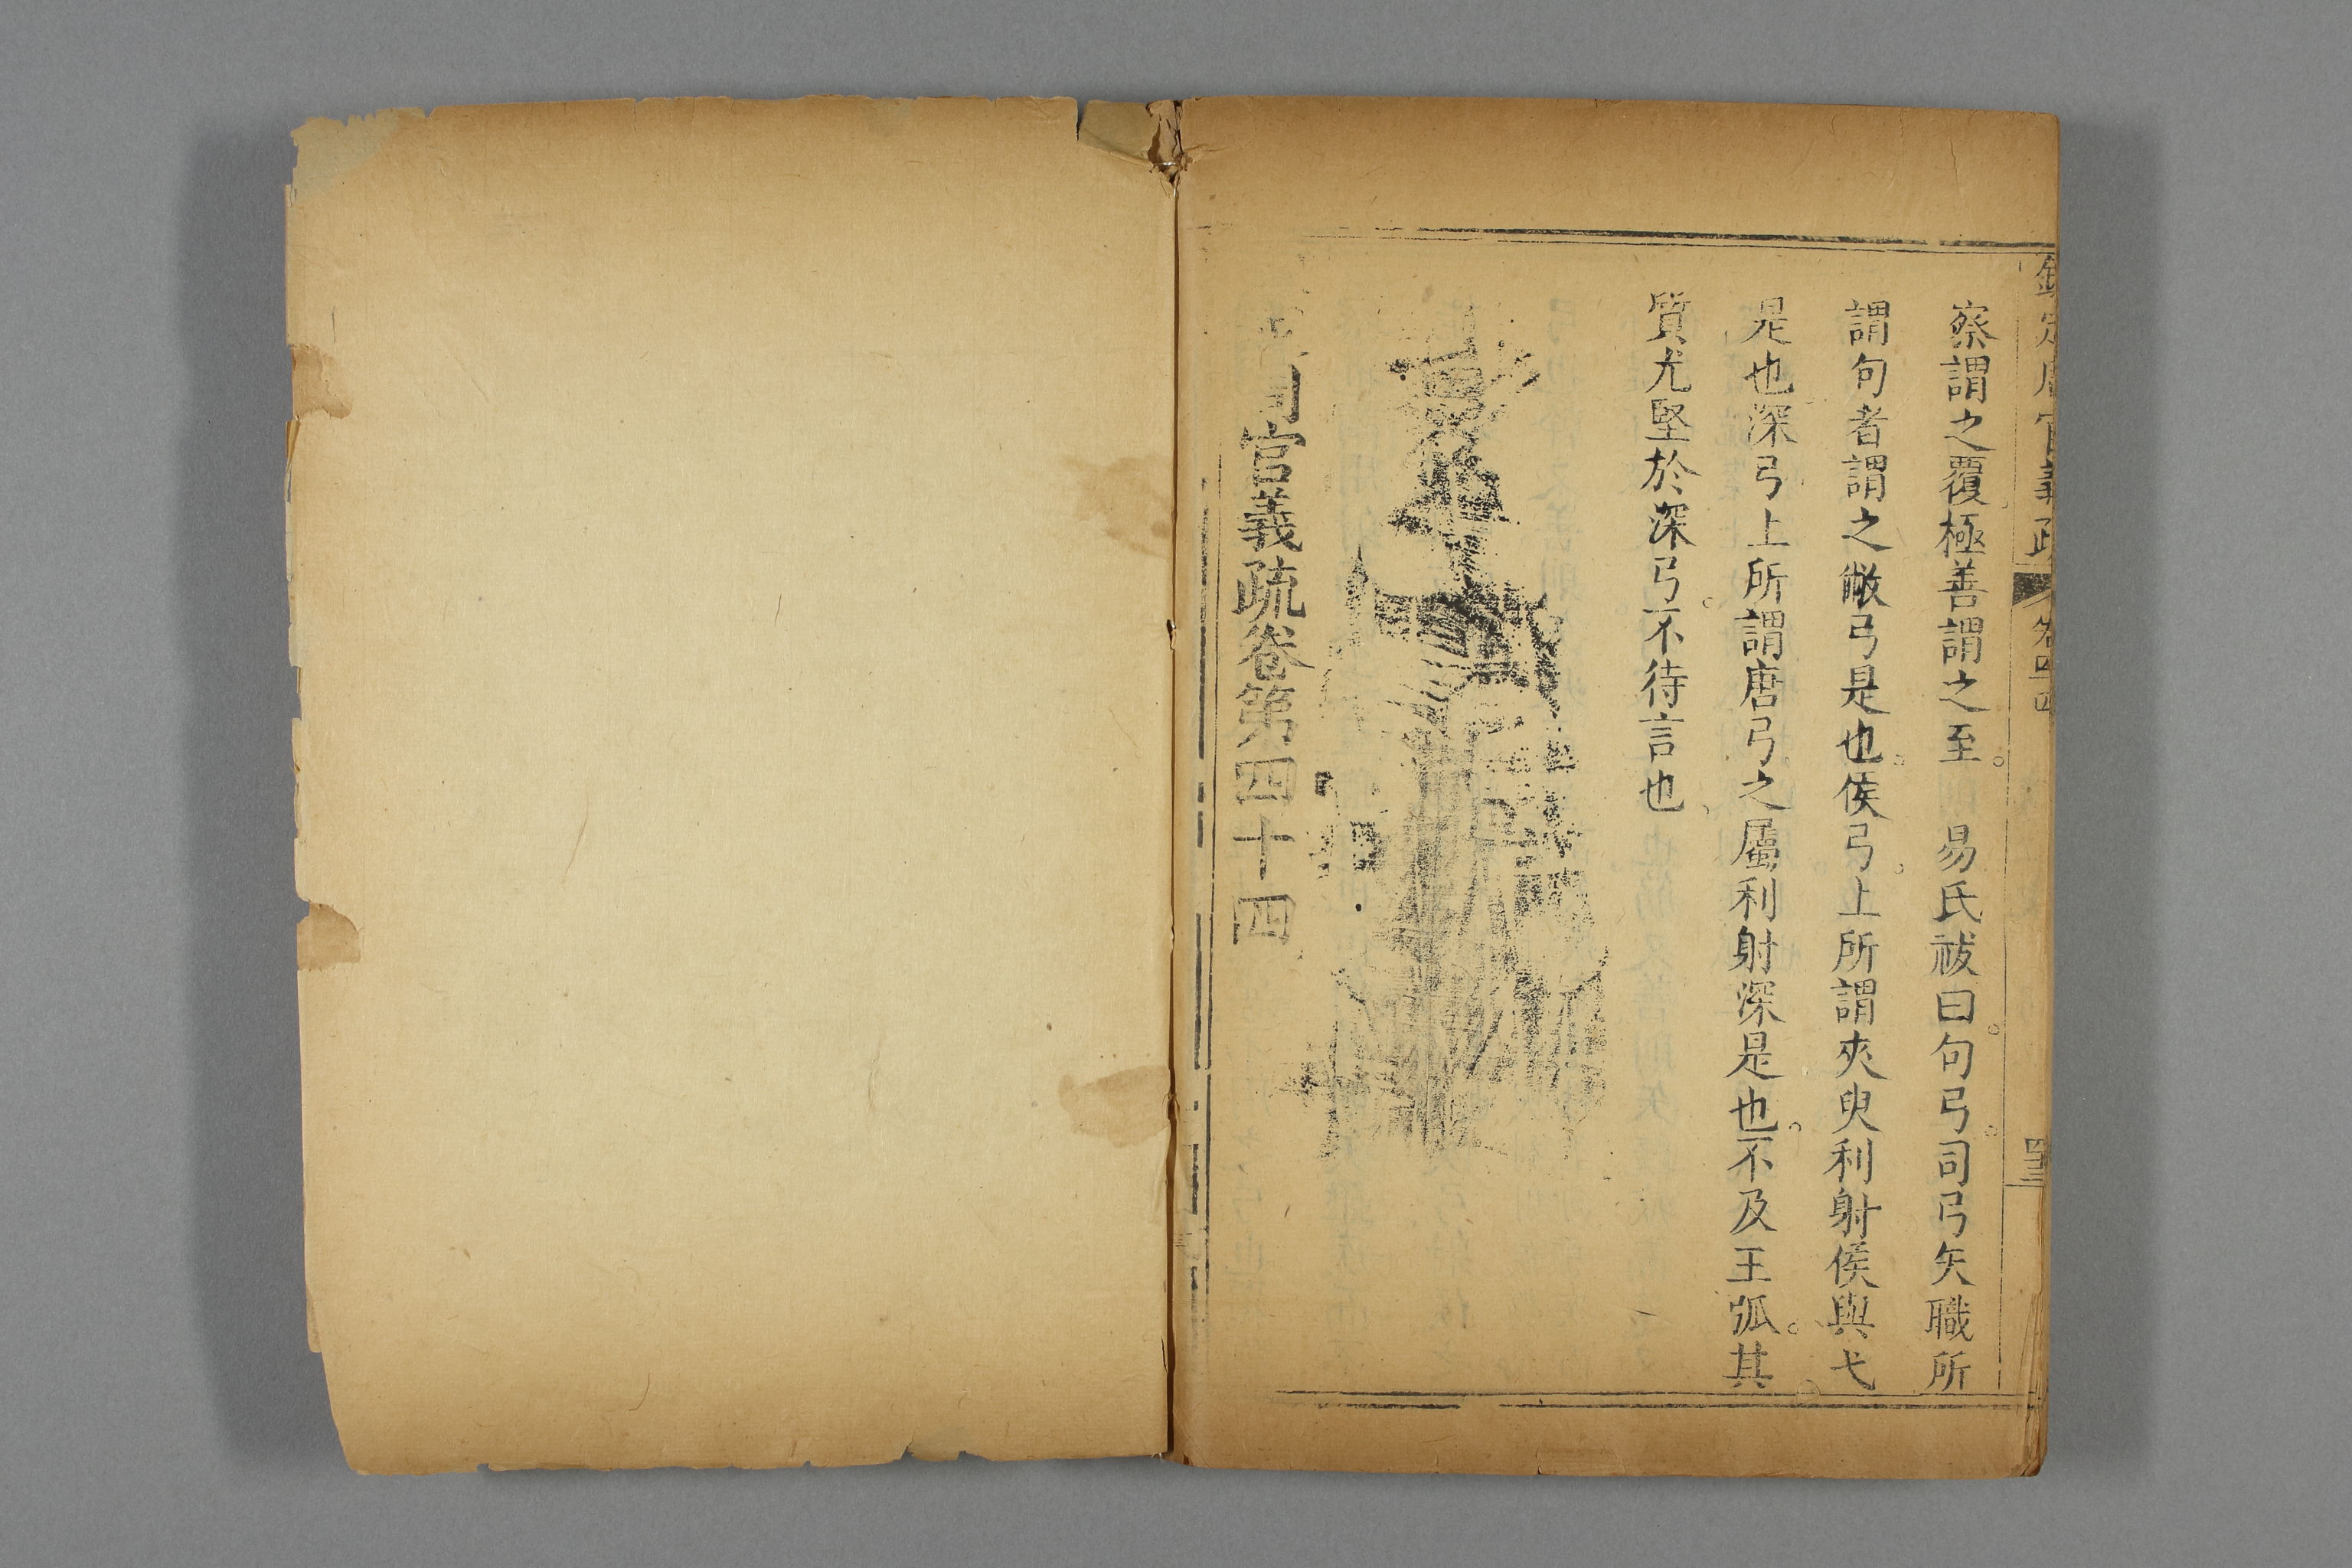 欽定周官義疏 卷四十四 四三
察謂之覆極善謂之至。 易氏祓曰。句弓。司弓矢職所
謂句者謂之敝弓是也。侯弓。上所謂夾臾利射侯與弋
是也。深弓上所謂唐弓之屬利射深是也。不及王弧。其
質尤堅於深弓。不待言也
周官義疏卷第四十四